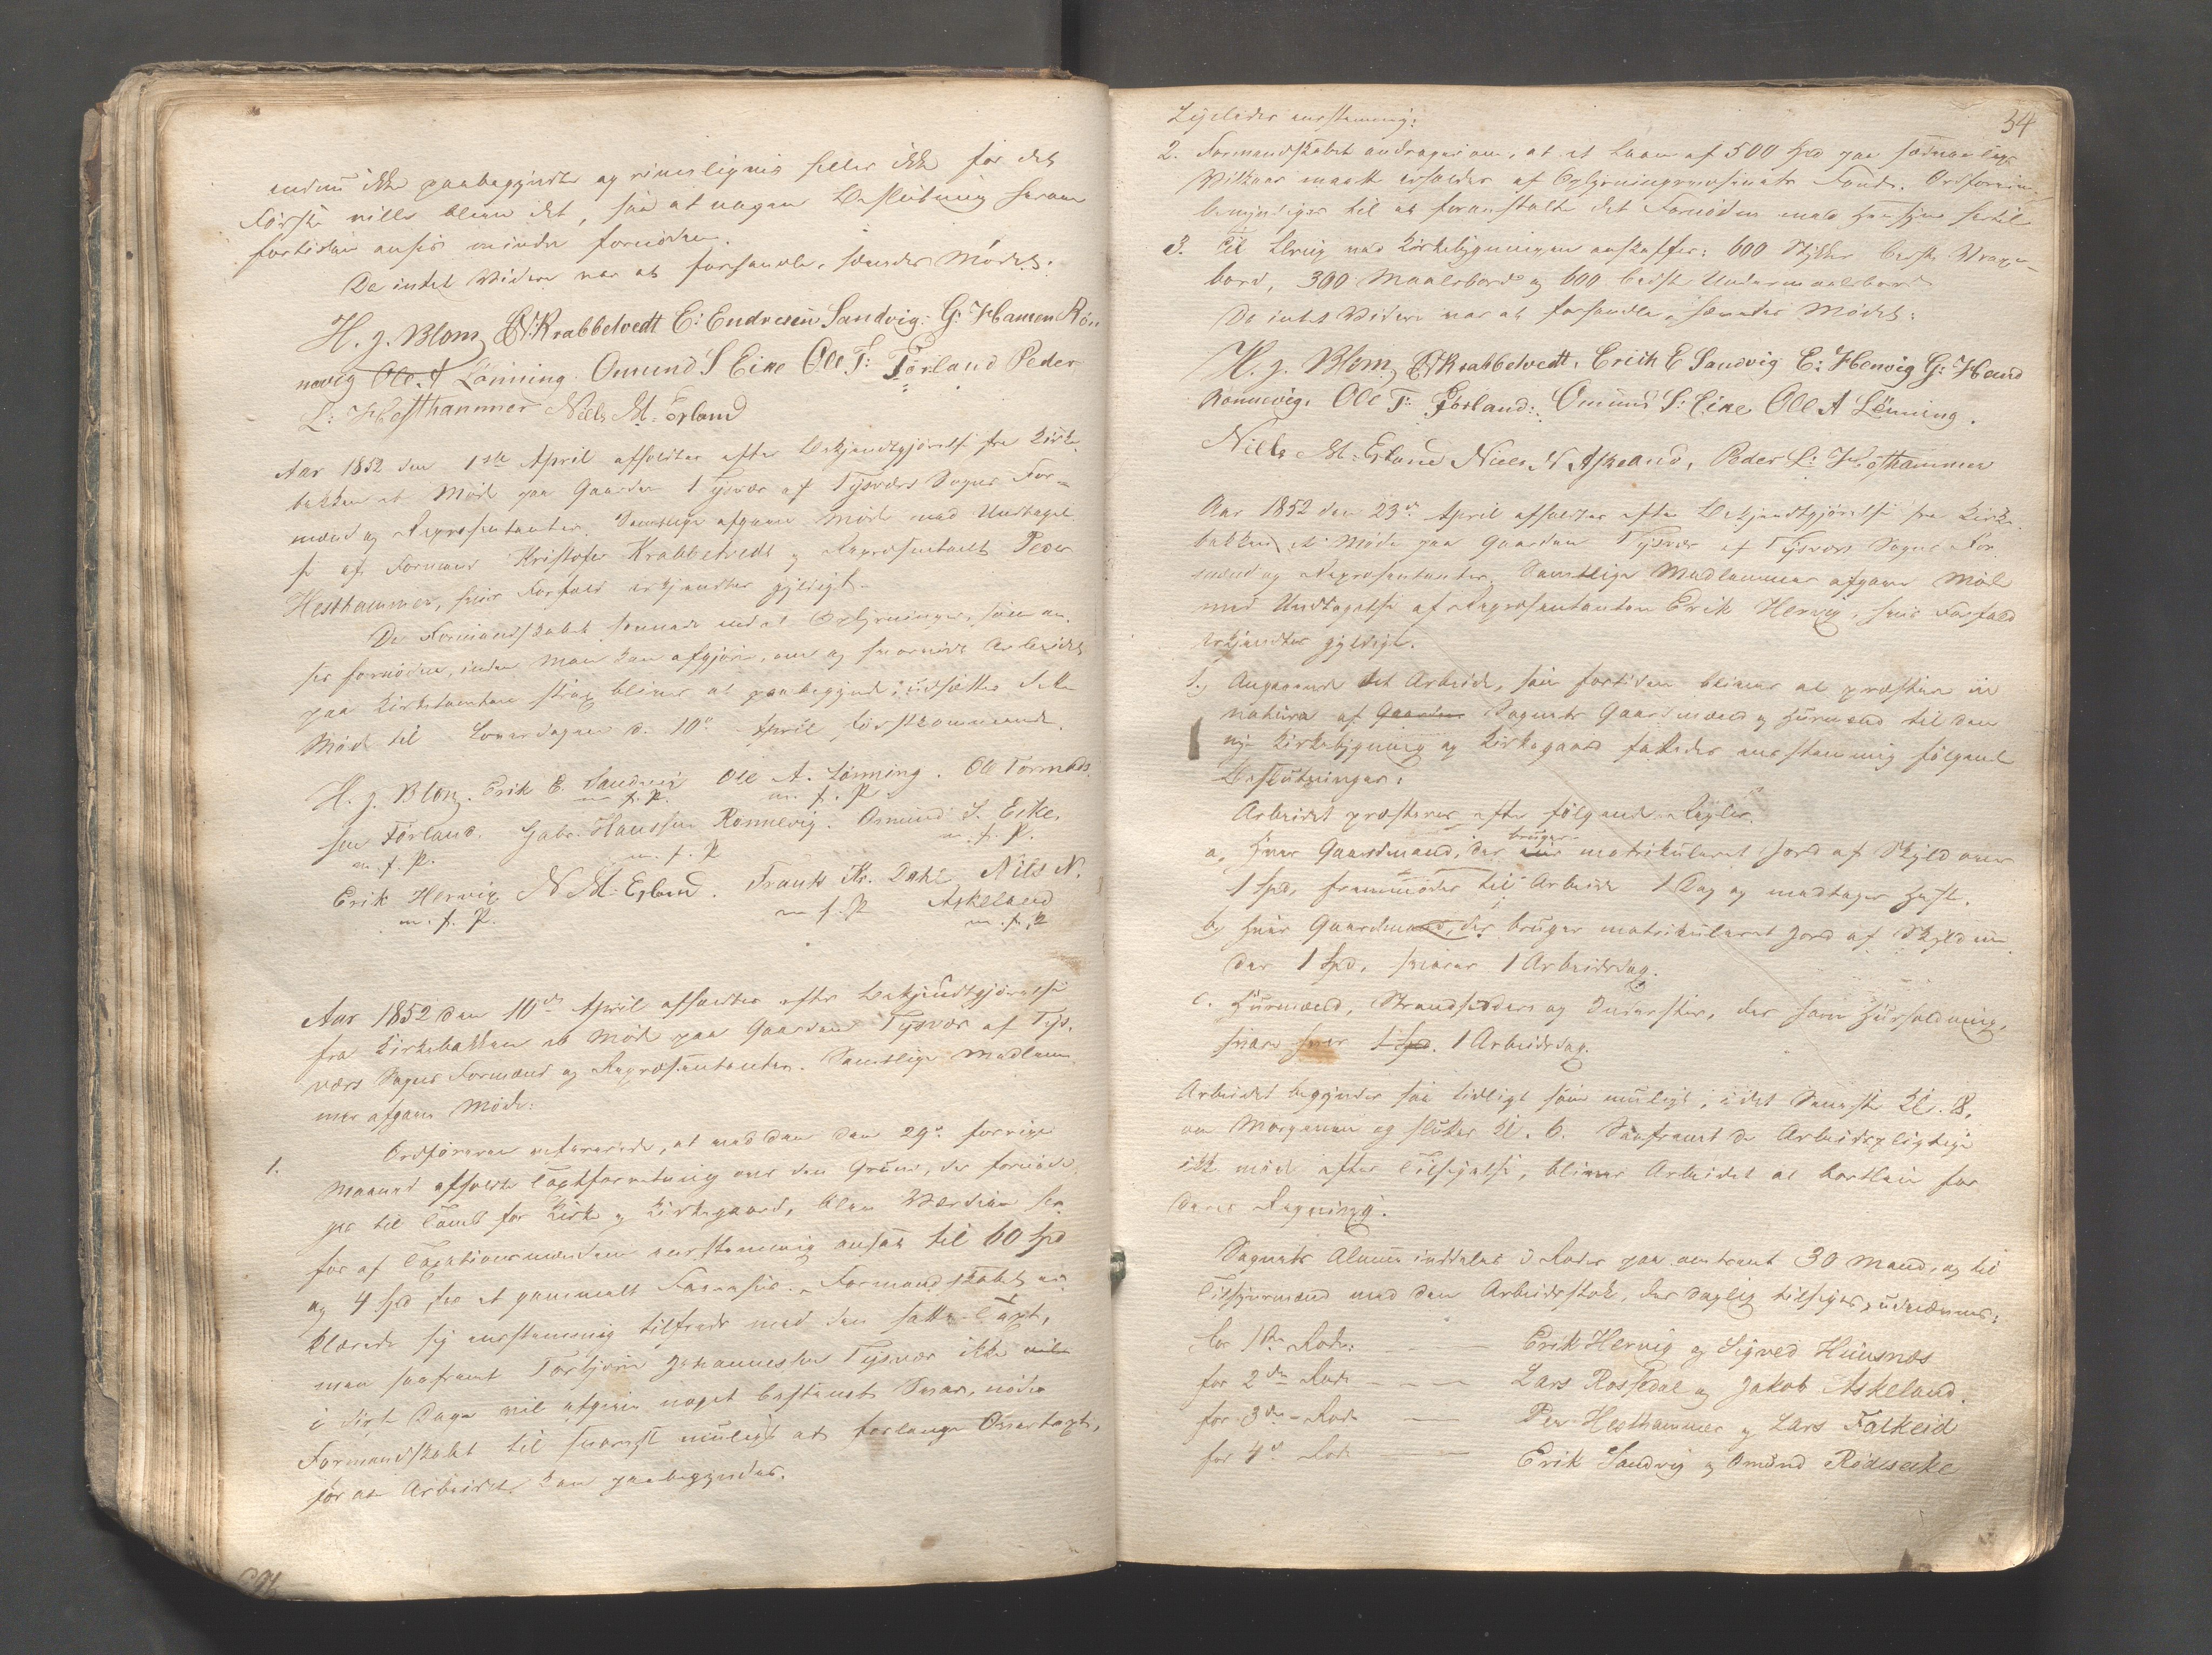 endnu ikke paabegyndt og rimeligvis heller ikke for det
Første ville blive det, saa at nogen Beslutning herom
fortiden ansees mindre fornøden.
Da intet Videre var at forhandle, hævedes Mødet.
H. J. Blom K Krabbetvedt E: Endresen Sandvig: G: Hansen Røn
nevig Ole A Lønning Omund S Eike Ole T: Førland Peder
L: Hesthammer Niels M. Erland
Aar 1852 den 1ste April afholdtes efter Bekjendtgjørelse fra Kirke-
bakken et Møde paa Gaarden Tysvær af Tysvær Sogns For-
mænd og Repræsentanter. Samtlige afgave Møde med Undtagel-
se af Formand Kristofer Krabbetvedt og Repræsentant Peder
Hesthammer, hvis Forfald erkjendtes gyldigt.
Da Formandskabet savnede endel Oplysninger, som an-
sees fornødne, inden man kan afgjøre, om og hvorvidt Arbeidet
paa Kirketomten strax bliver at paabegynde, udsættes dette
Møde til Løverdagen d. 10de April førstkommende.
H. J. Blom. Erik E. Sandvig Ole A. Lønning. Ole Tormods-
m. f. P. m. f. P
sen Førland. Gabr. Hanssen Rønnevig. Omund S. Eike.
m. f. P. m. f. P m. f. P.
Erik Hervig N M. Erland. Frants Kr. Dahl Nils N.
m. f. P. m f. P Askeland
m. f. P
Aar 1852 den 10de April afholdtes efter Bekjendtgjørelse
fra Kirkebakken et Møde paa Gaarden Tysvær af Tys-
værs Sogns Formænd og Repræsentanter. Samtlige Medlem-
mer afgave Møde.
1. Ordføreren refererede, at med den den 29de forrige
Maaned afholdte Taxtforretning over den Grund, der fornøde-
ges til Tomt for Kirke og Kirkegaard, blev Værdien her-
for af Taxationsmændene eenstemmig ansat til 60 Spd
og 4 Spd for et gammelt Faarehuus. Formandskabet er-
klærede sig eenstemmig tilfreds med den satte Taxt,
men saafremt Torbjørn Johannessen Tysvær ikke
i disse Dage vil afgive noget bestemt Svar, nødes
Formandskabet til snarest muligt at forlange Overtaxt,
for at Arbeidet kan paabegyndes.
34
Ligeledes eenstemmig:
2. Formandskabet andrager om, at et Laan af 500 Spd paa sædvanlige
Vilkaar maatte erholdes af Oplysningsvæsenets Fond. Ordføreren
bemyndiges til at foranstalte det Fornødne med Hensyn hertil
3. Til Brug ved Kirkebygningen anskaffes: 600 Stykker bedste Vrag-
bord, 300 Maalsbord og 600 bedste Undermaalsbord
Da intet Videre var at forhandle, hævedes Mødet:
H. J. Blom K Krabbetvedt. Erich E Sandvig E: Hervig G: Hand
Rønnevig. Ole T: Førland: Omund S: Eike Ole A Lønning.
Niels M. Erland Niels N Askeland, Peder L: Hesthammer
Aar 1852 den 23de April afholdtes efter Bekjendtgjørelse fra Kirke-
bakken et Møde paa Gaarden Tysvær af Tysvær Sogns For-
mænd og Repræsentanter. Samtlige Medlemmer afgave Møde
med Undtagelse af Repræsentanten Erik Hervig, hvis Forfald
erkjendtes gyldigt.
1. Angaaende det Arbeide, som fortiden bliver at præstere in
natura af Gaarden Sognets Gaardmænd og Huusmænd til den
nye Kirkebygning og Kirkegaard fattedes eenstemmig følgende
Beslutninger:
Arbeidet præsteres efter følgende Regler.
a, Hver Gaardmand, der bruger matrikuleret Jord af Skyld over
1 Spd, fremmøder til Arbeide 1 Dag og medtager Hest.
b, Hver Gaardmand, der bruger matrikuleret Jord af Skyld un-
der 1 Spd, svarer 1 Arbeidsdag.
c. Huusmænd, Strandsiddere og Inderster, der have Huusholdning,
svare hver 1 Spd. 1 Arbeidsdag.
Arbeidet begyndes saa tidligt som muligt, i det Seneste Kl. 8,
om Morgenen og sluttes Kl. 6. Saafremt de Arbeidspligtige
ikke møde efter Tilsigelse, bliver Arbeidet at bortleie for
deres Regning.
Sognets Almue inddeles i Roder paa omtrent 30 Mand, og til
Tilsynsmænd med den Arbeidsstok, der daglig tilsiges, udnævnes:
for 1ste Rode: — — Erik Hervig og Sigved Huusnæs
for 2den Rode — — — Lars Rossedal og Jakob Askeland.
for 3die Rode — — Per Hesthammer og Lars Falkeid
for 4de Rode — — Erik Sandvig og Omund Rødseike